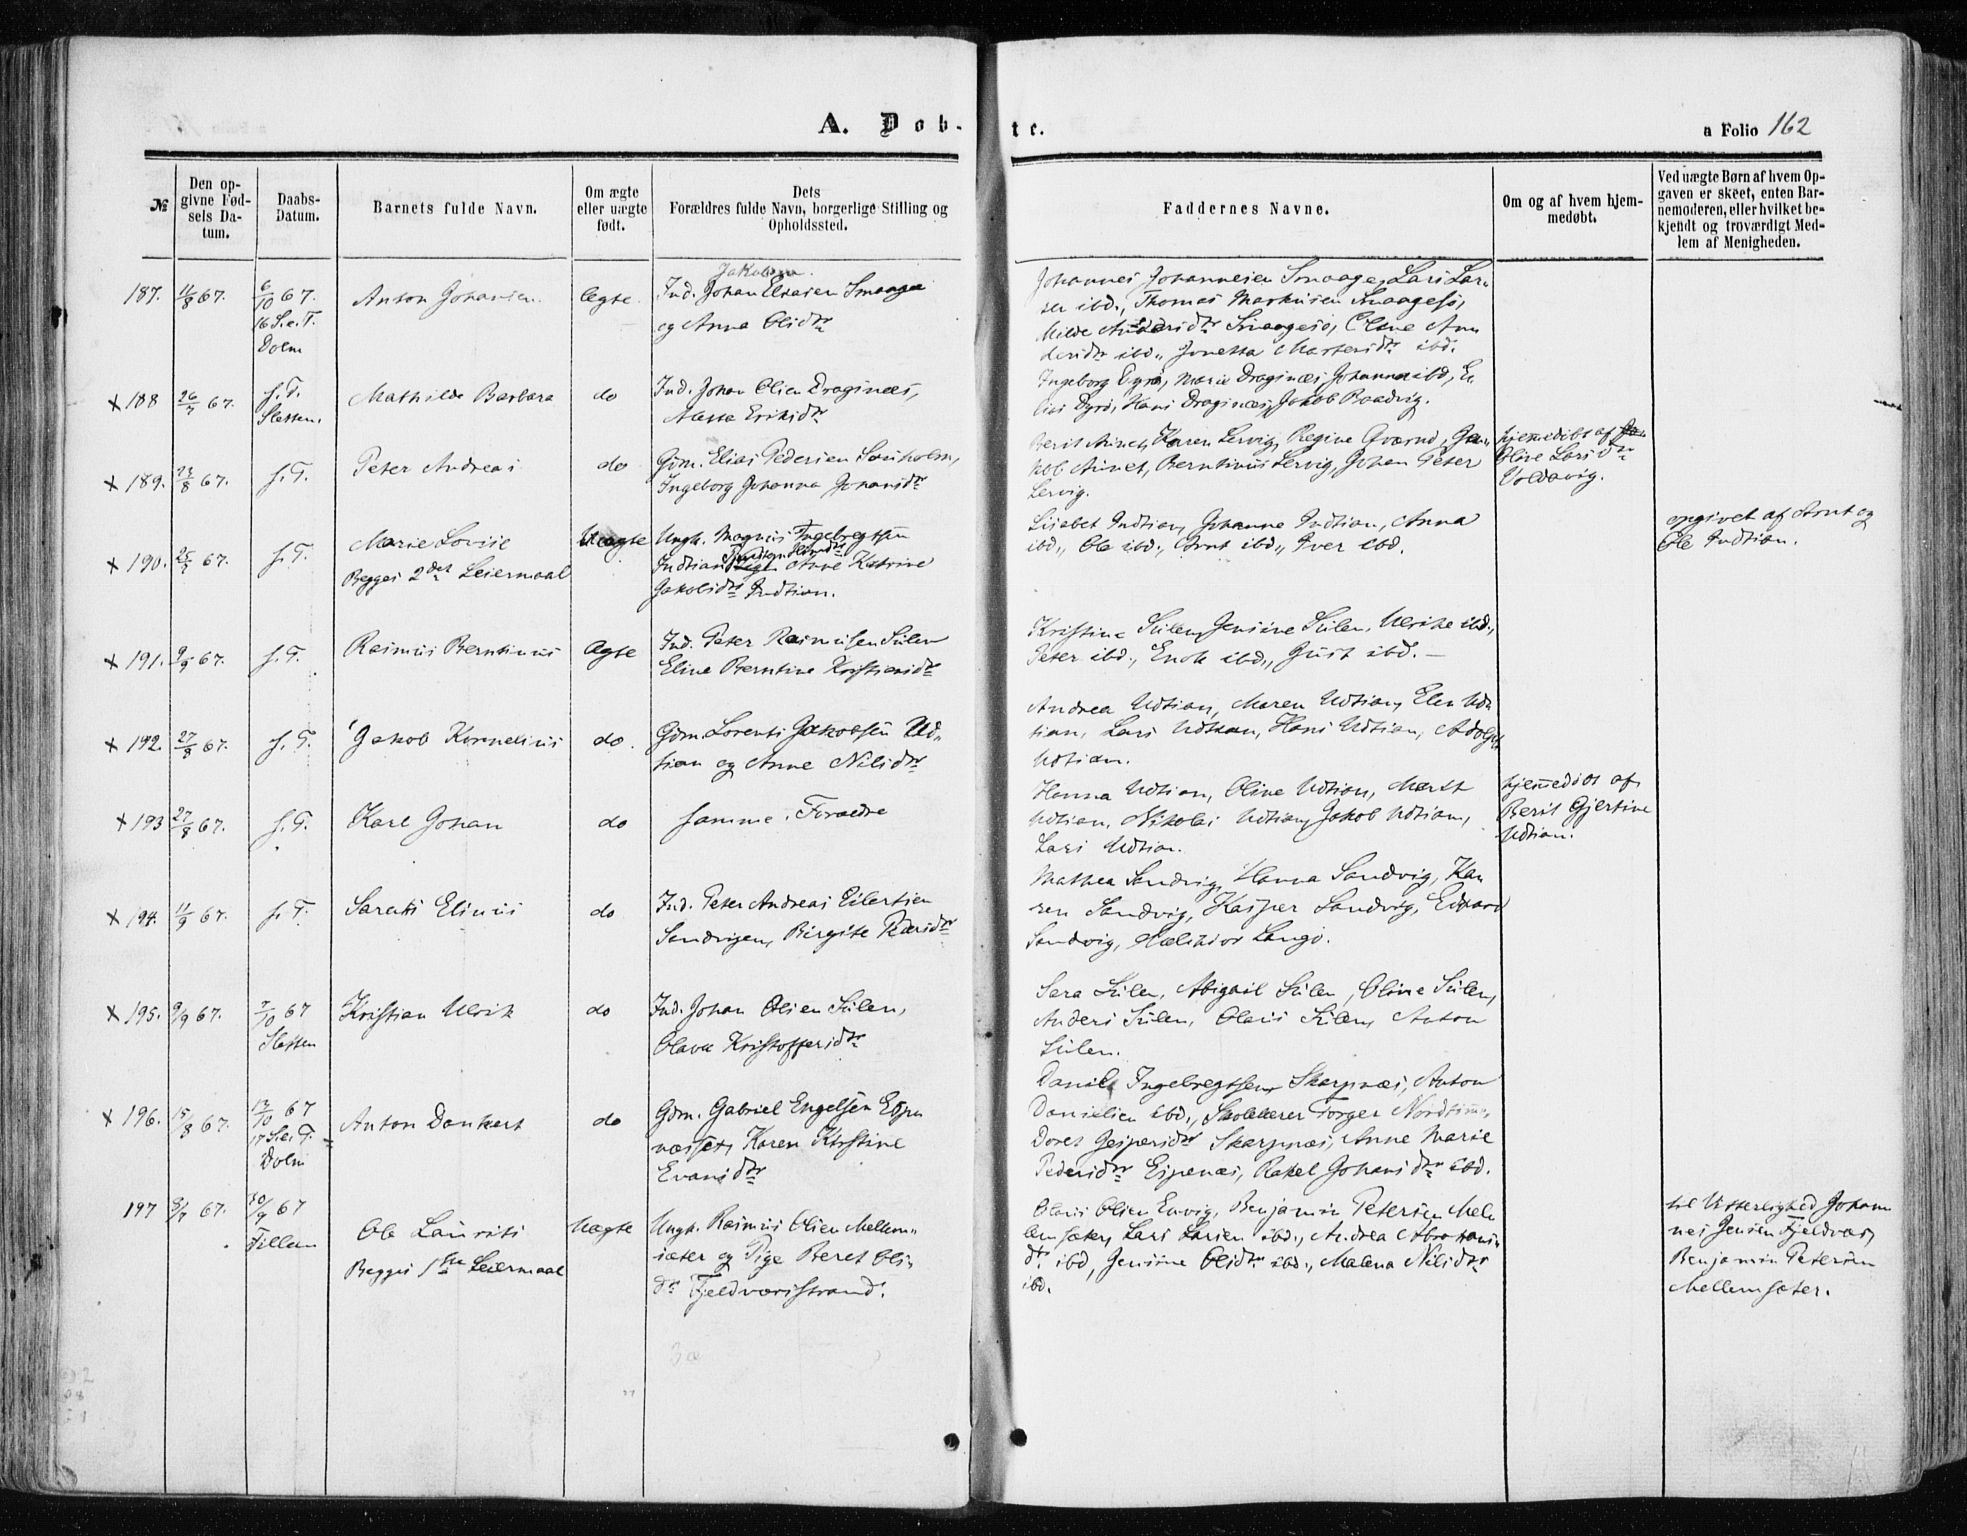 A. Døb-
te.
a Folio 162
№
Den op-
givne Fød-
sels Da-
tum.
Daabs-
Datum.
Barnets fulde Navn.
Om ægte
eller uægte
født.
Dets
Forældres fulde Navn, borgerlige Stilling og
Opholdssted.
Faddernes Navne.
Om og af hvem hjem-
medøbt.
Ved uægte Børn af hvem Op-
gaven er skeet, enten Bar-
nemoderen, eller hvilket be-
kjendt og troværdigt Med-
lem af Menigheden.
187. 11/8 67. 6/10 67. Anton Johansen Ægte
16 S.e.T.
Dolm
Jakobsen
Ind. Johan Eliasen Smaage
og Anne Olsdtr
Johannes Johannesen Smaage, Lars Lar-
sen ibd., Thomas Markusen Smaagesø,
Smaagesø, Oline An-
dersdtr ibd., Jonetta Martersdtr ibd.
x 188 26/7 67. s. T. Mathilde Barbara do
Sletten.
Ind. Johan Olsen Dragsnæs,
Masse Eriksdtr
Ingeborg Dyrø, Marie Dragsnæs, Johanna ibd, E-
lias Dyrø, Hans Dragsnæs, Jakob Raadvig.
x 189. 23/8 67. s. T. Peter Andreas do
Gdm. Elias Pedersen
Ingeborg Johanna Johansdtr
Berit Aunet, Karen Lervig, Regine Qværnø, Ja-
kob Aunet, Berntinus Lervig, Johan Peter
Lervig.
hjemmedøbt af
Oline Larsdtr
Voldavig.
x 190. 25/7 67. s. T. Marie Lovise Uægte
Begges 2det Leiermaal
Ungk. Magnus Ingebregtsen
Indtian Anne Katrine
Jakobsdtr Indtian.
Lisabet Indtian, Johanne Indtian, Anna
ibd., Ole ibd., Arnt ibd., Iver ibd.
opgivet af Arnt og
Ole Indtian.
x 191. 9/9 67. s. T. Rasmus Berntinus Ægte
Ind. Peter Rasmusen Sulen
Eline Berntine Kristiansdtr
Kristine Sulen, Jensine Sulen, Ulrike ibd.,
Peter ibd., Enok ibd., Gust ibd. —
x 192. 27/8 67. s. T. Jakob Kornelius do.
Gdm. Lorents Jakobsen Ud-
tian og Anne Nilsdtr
Andrea Udtian, Maren Udtian, Elen Ud-
tian, Lars Udtian, Hans Udtian, Adolf
Udtian.
x 193 27/8 67. s. T. Karl Johan do
samme Forældre
Hanna Udtian, Oline Udtian, Marit
Udtian, Nikolai Udtian, Jakob Udtian,
Lars Udtian.
hjemmedøbt af
Berit Gjertine
Udtian.
x 194. 11/9 67. s. T. Sarak Elinus do
Ind. Peter Andreas Eilertsen
Sandvigen, Birgite Pedersdtr
Mathea Sandvig, Hanna Sandvig, Ka-
ren Sandvig, Kasper Sandvig, Edvard
Sandvig, Melkior Langø.
x 195. 9/9 67. 7/10 67 Kristian Ulrik do
Sletten
Ind. Johan Olsen Sulen,
Olava Kristoffersdtr
Sara Sulen, Abigail Sulen, Oline Sulen,
Anders Sulen, Olaus Sulen, Anton
Sulen.
x 196. 15/8 67. 13/10 67 Anton Dankert do
17 S.e.T.
Dolm
Gdm. Gabriel Engelsen Espe-
næsset, Karen Kirstine
Evansdtr
Daniel Ingebregtsen, Skarpnæs, Anton
Danielsen ibd., Skolelærer Torger
Doret Jespersdtr Skarpnæs, Anne Marie
Pedersdtr Espenæs, Rakel Johansdtr ibd.
197 3/7 67. 30/9 67 Ole Laurits Uægte
Fillan
Begges 1ste Leiermaal
Ungk. Rasmus Olsen Mellem-
sæter og Pige Beret Ols-
dtr Fjeldværsstrand.
Olaus Olsen Envig, Benjamin Petersen Mel-
lemsæter, Lars Larsen ibd., Andrea Abrahams-
dtr ibd, Jensine Olsdtr ibd., Malena Nilsdtr
ibd.
til Vitterlighed Johan-
nes Jensen Fjeldvær,
Benjamin Petersen
Mellemsæter.